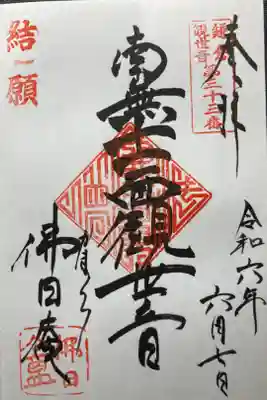 奉拝
鎌倉
観世音第三十三番
令和六年
六月七日
南無十一面觀世音
結願
かまくら
佛日庵